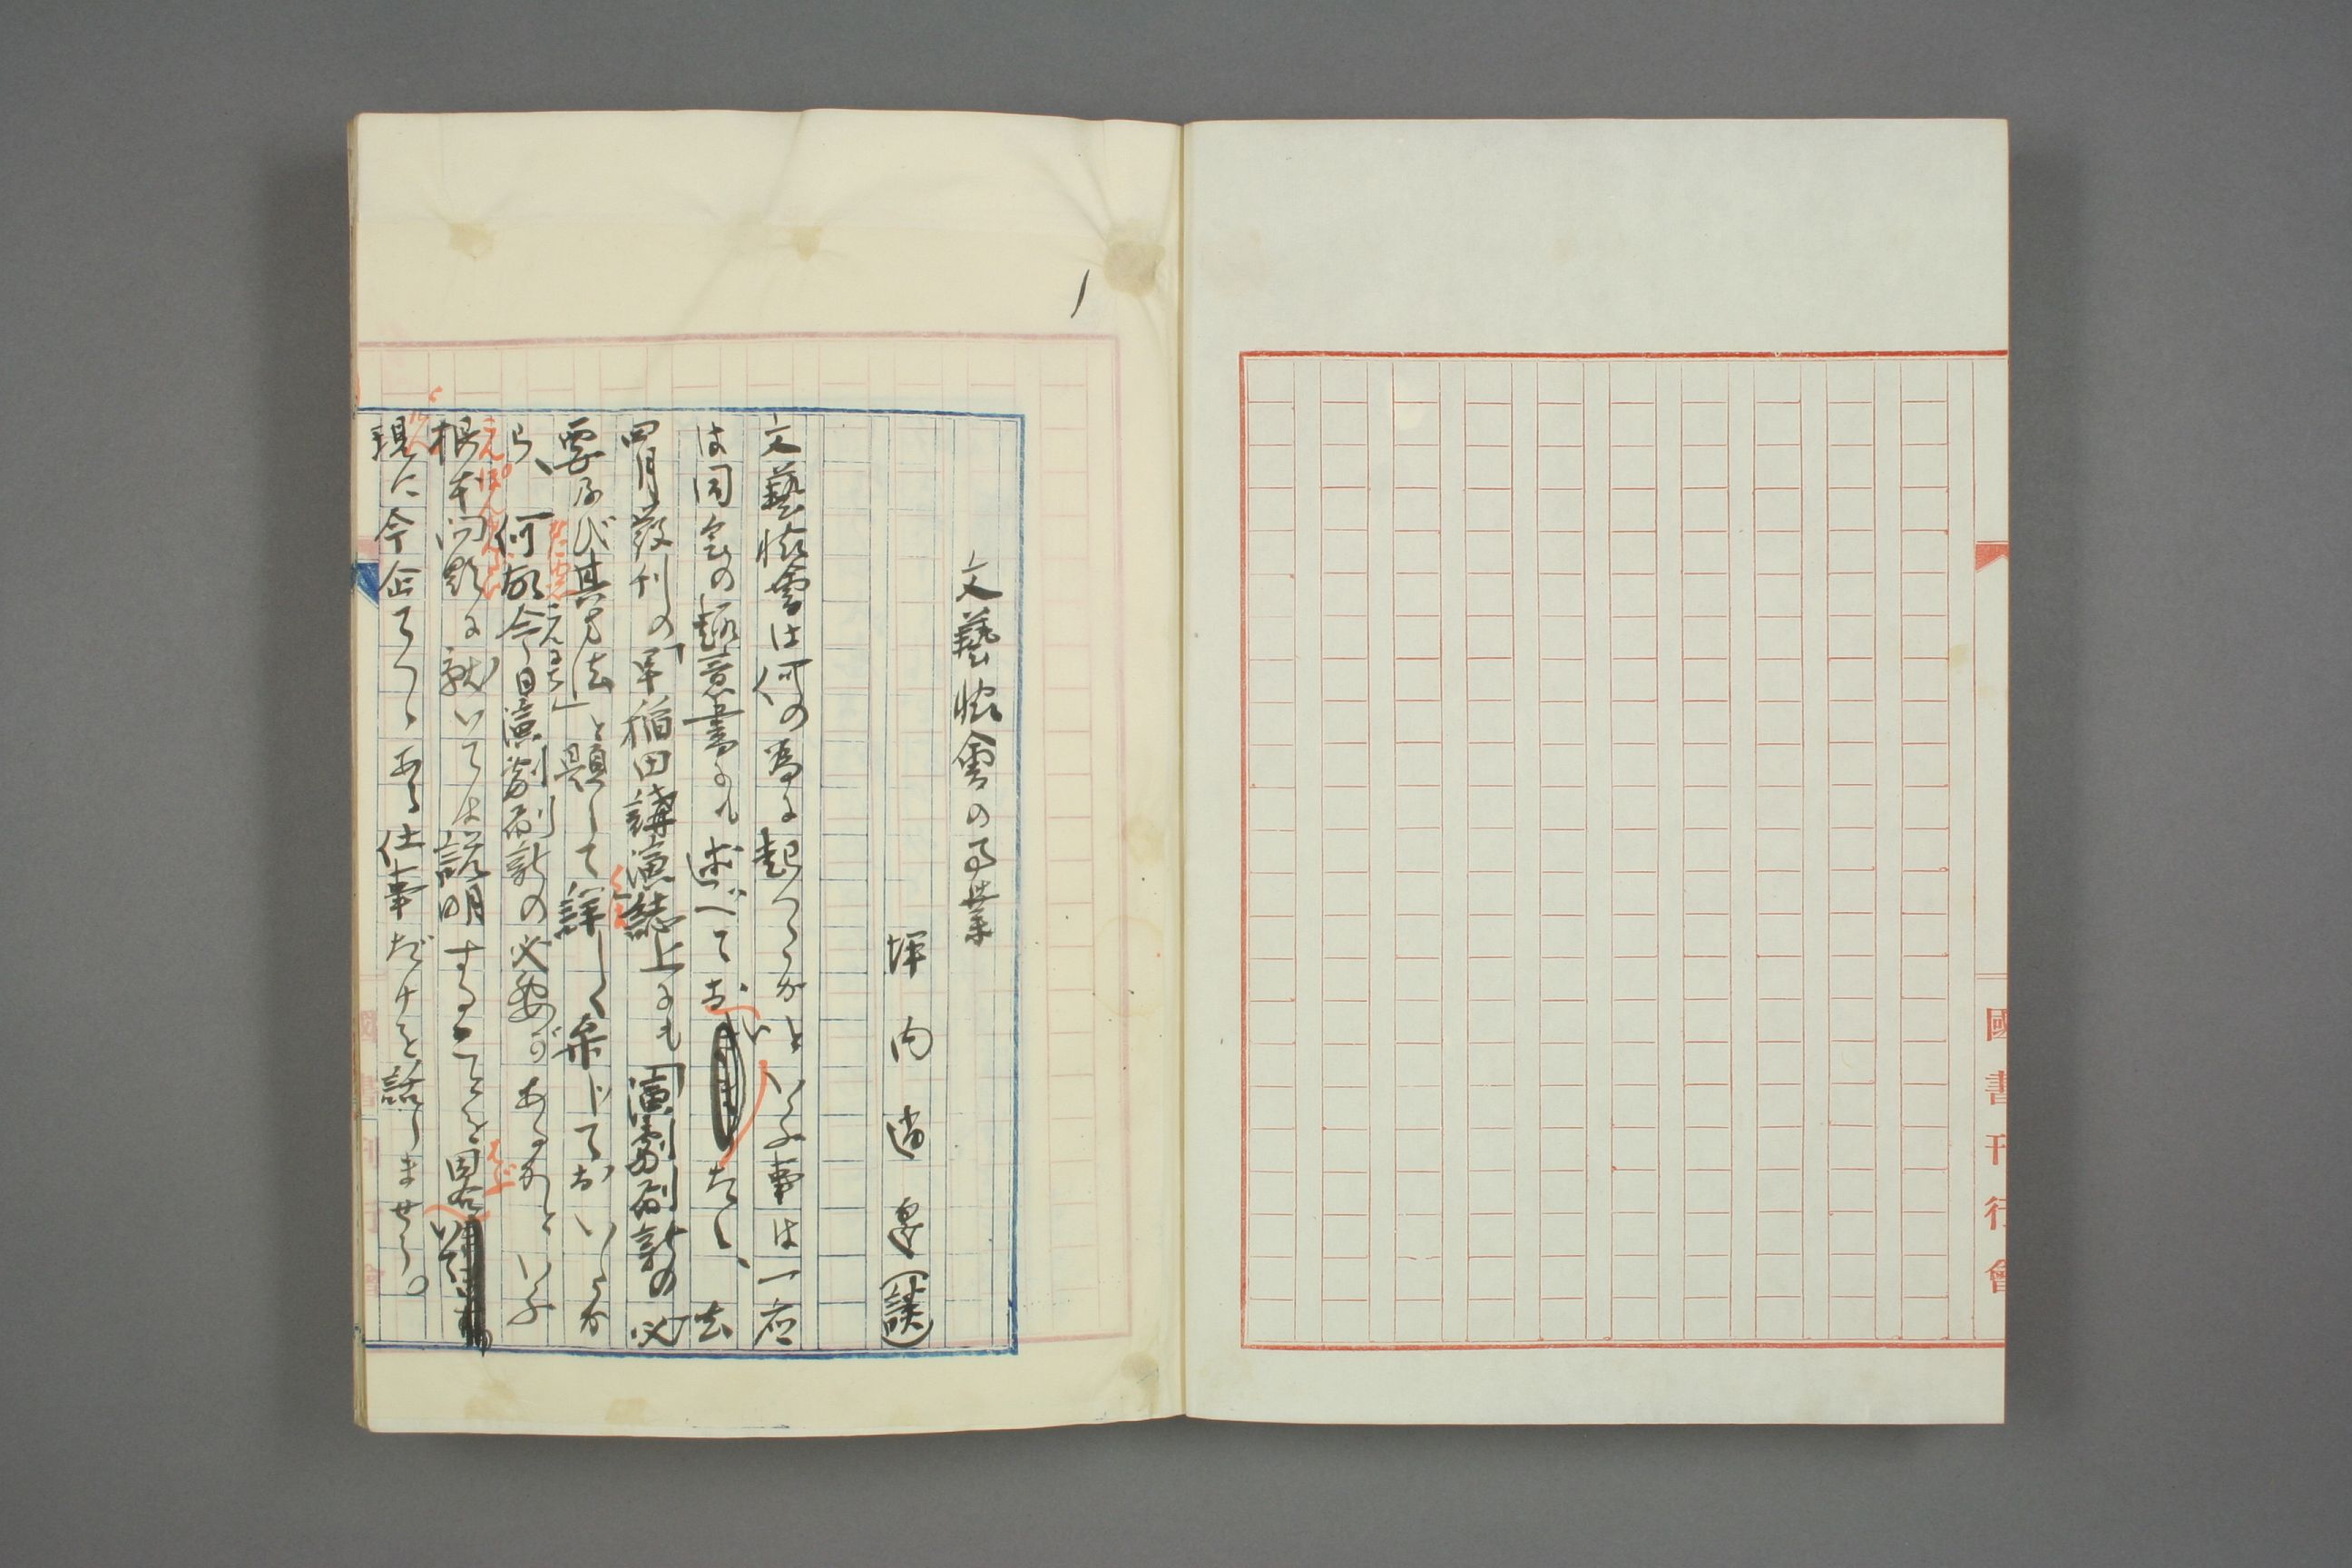 國書刊行會
1
文藝協會の事業
坪内逍遙(談)
文藝協會は何の為に起つたかといふ事は一応
は同會の趣意書にも述べておいたし、去
四月發刊の「早稲田講演」誌上にも「演劇刷新の必
要及び其方法」と題して詳しく弁じておいたか
ら、何故今日演劇刷新の必要があるかといふ
根本問題に就いては説明することを畧いて
現に今企てつゝある仕事だけを話しませう。